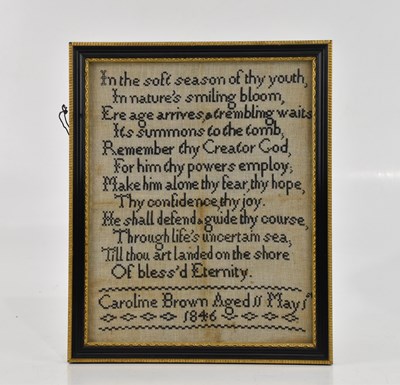 In the soft season of thy youth,
In nature's smiling bloom,
Ere age arrives, & trembling waits
Its summons to the tomb,
Remember thy Creator God,
For him thy powers employ;
Make him alone thy fear, thy hope,
Thy confidence, thy joy.
He shall defend & guide thy course,
Through life's uncertain sea,
Till thou art landed on the shore
Of bless'd Eternity.
Caroline Brown Aged 11 May 1st
1846